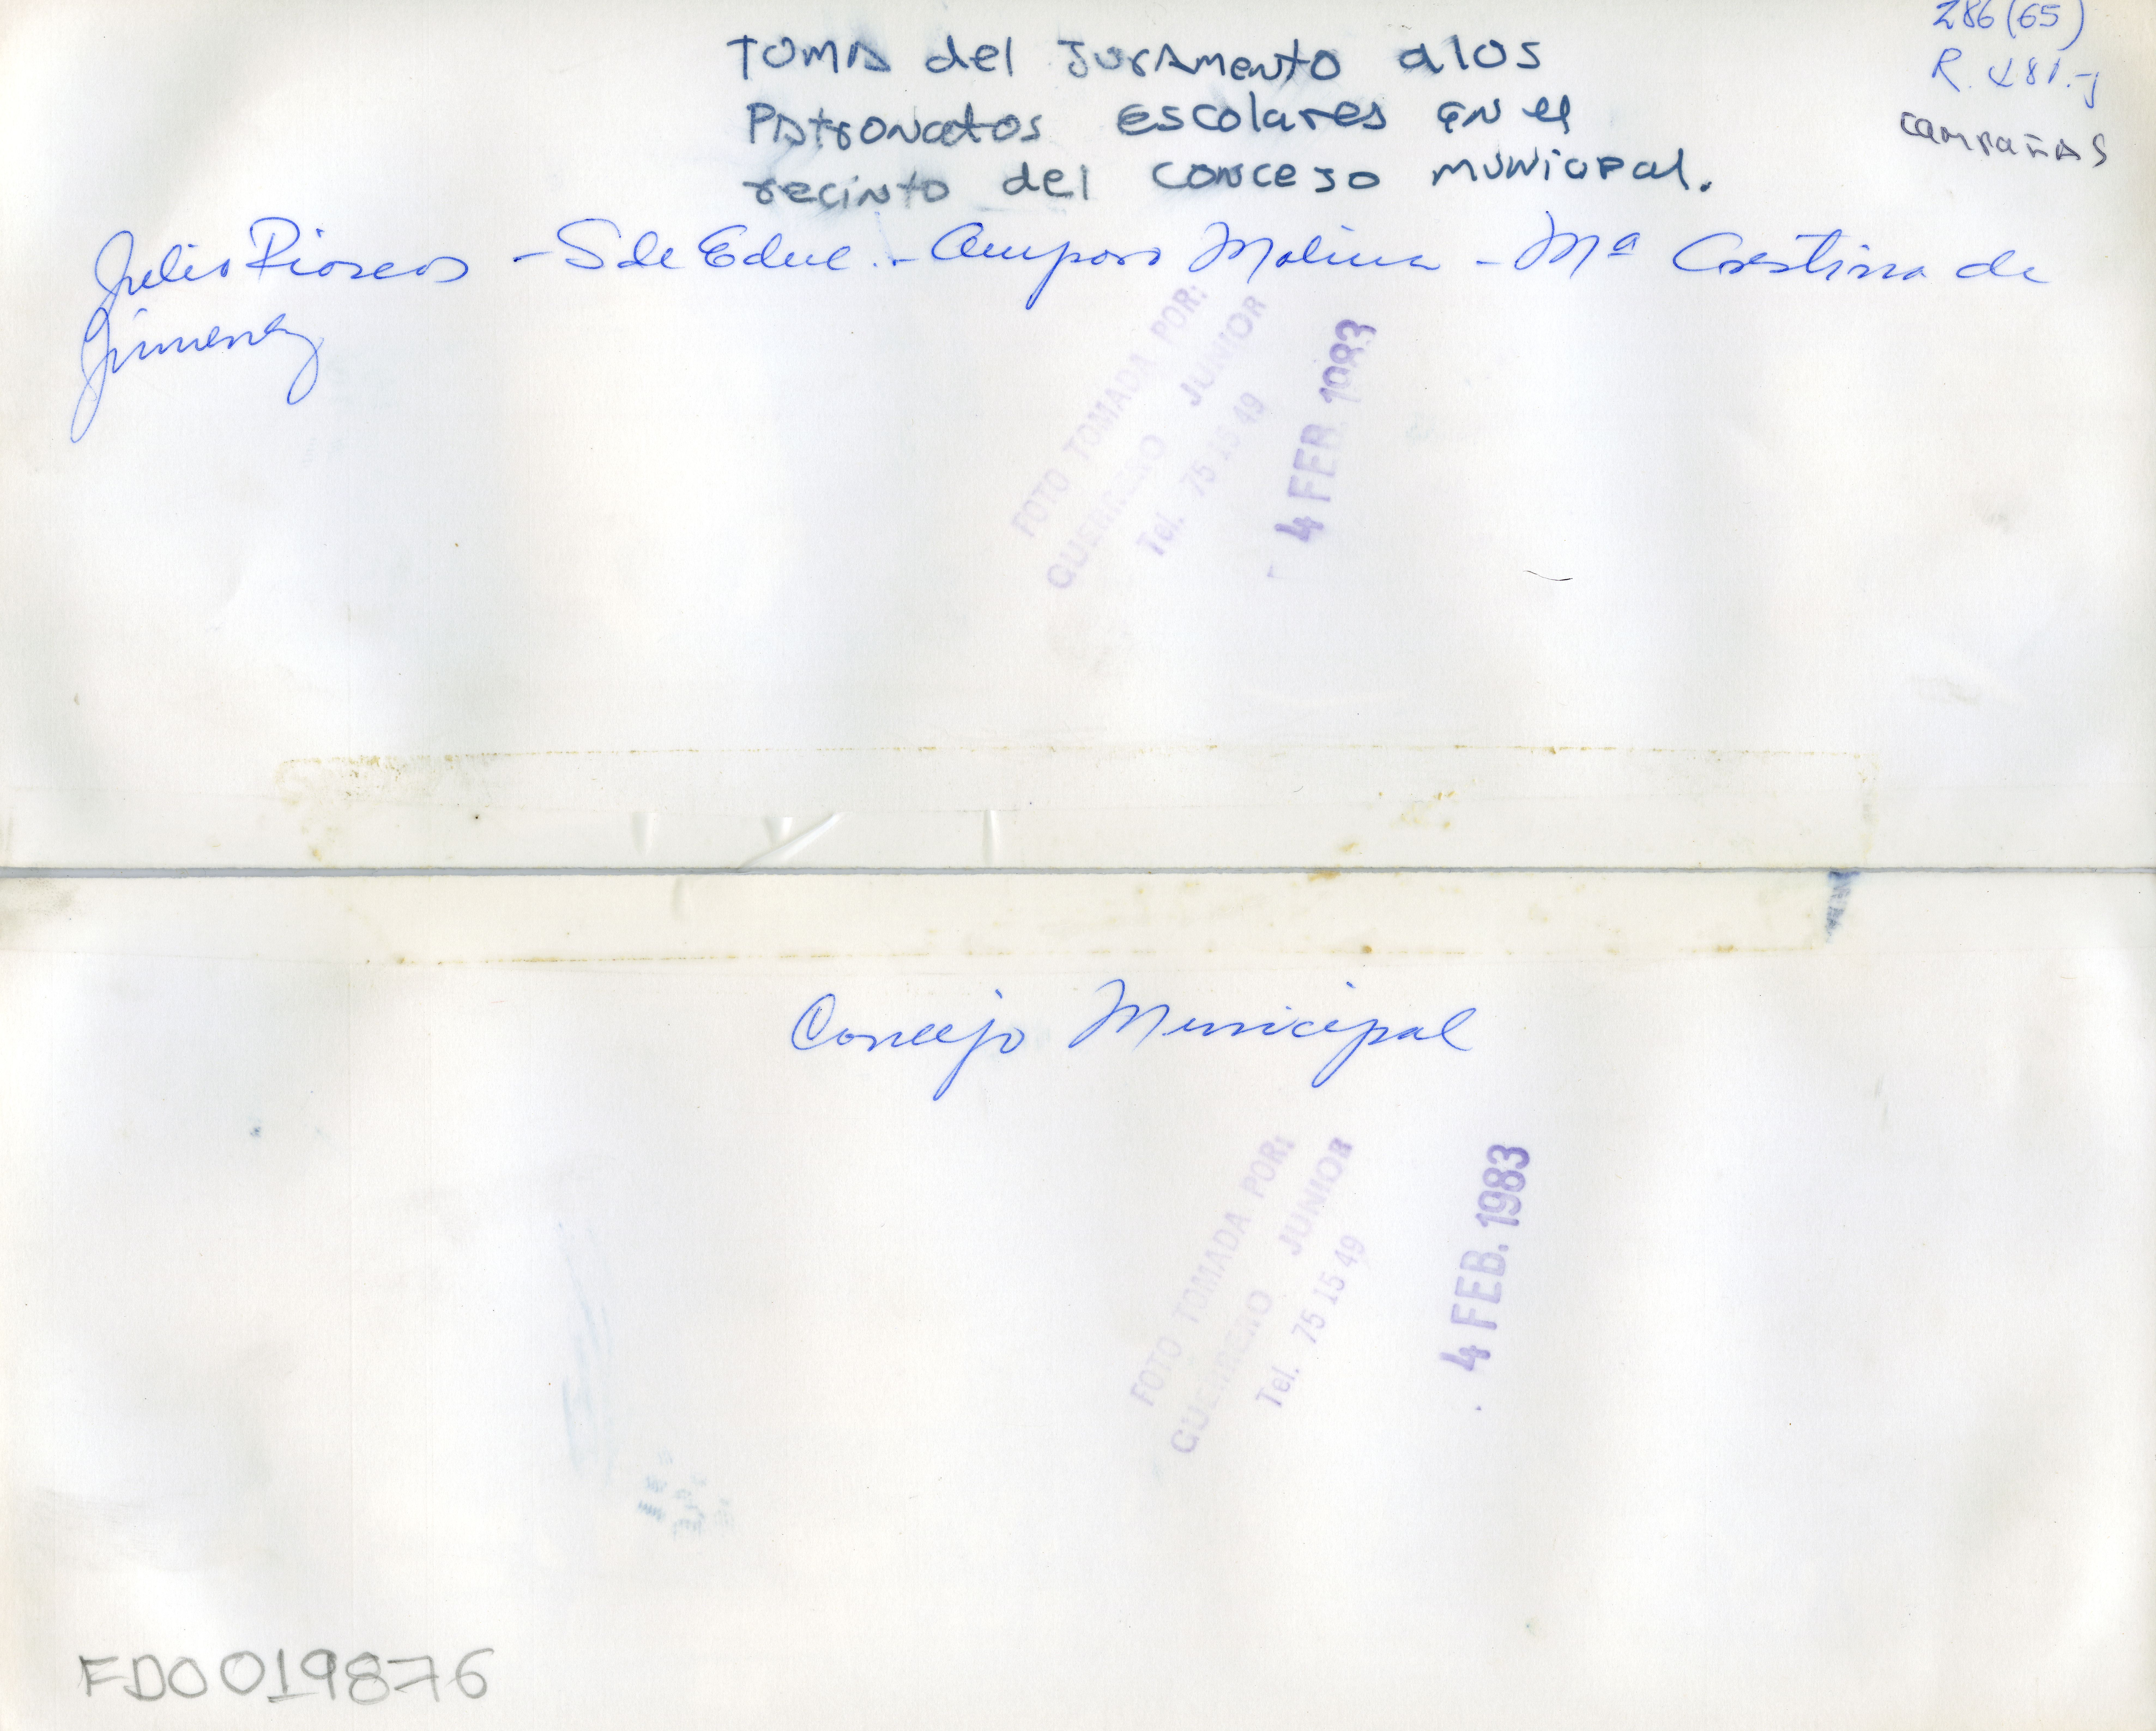 286(65)
R.
CAMPAÑAS
TOMA del JurAmento alos
PAtroNatos escolares en el
recinto del concejo municipal.
Julio Rioscos - S de Educ. - Amparo Molina - Mª Cristina de
Jimenez
FOTO TOMADA POR:
GUERRERO JUNIOR
Tel. 75 15 49
4 FEB. 1983
Concejo Municipal
FOTO TOMADA POR:
GUERRERO JUNIOR
Tel. 75 15 49
4 FEB. 1983
FD0019876